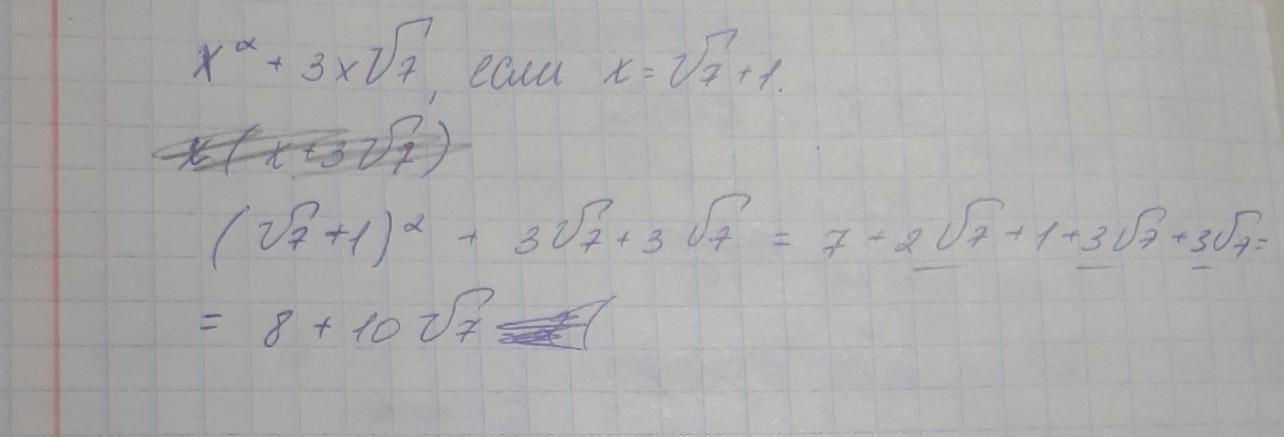 x² + 3x√7, если x = √7 + 1.
x(x+3√7)
(√7+1)² + 3√7 + 3√7 = 7 + 2√7 + 1 + 3√7 + 3√7 =
= 8 + 10√7